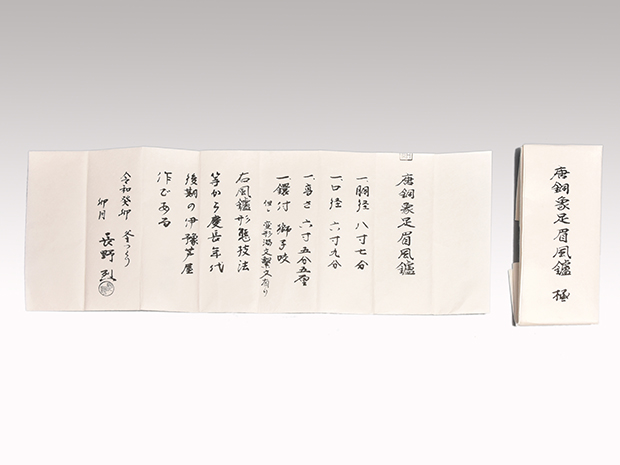 唐銅象足眉風鑪
一、胴径 八寸七分
一、口径 六寸九分
一、高さ 六寸五分五厘
一、鐶付 獅子咬
右風鑪形態技法
等から慶長年代
後期の伊豫芦屋
作である
令和癸卯 釜つくり
卯月 長野烈
唐銅象足眉風鑪 極